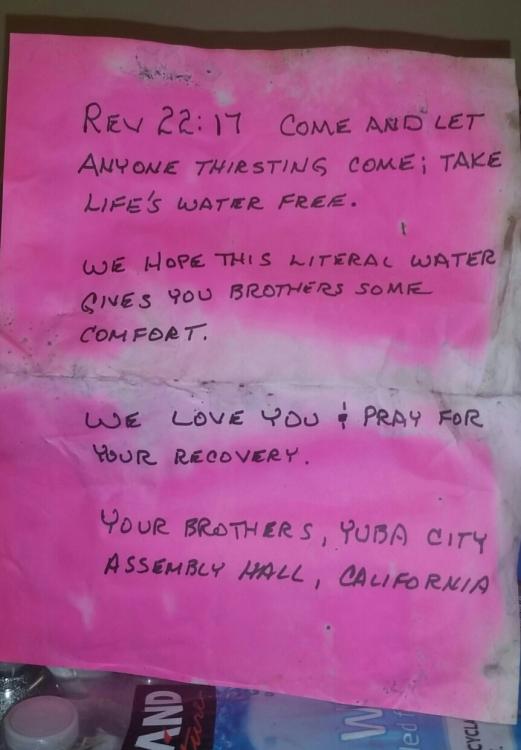 REV 22:17 COME AND LET
ANYONE THIRSTING COME; TAKE
LIFE'S WATER FREE.
WE HOPE THIS LITERAL WATER
GIVES YOU BROTHERS SOME
COMFORT.
WE LOVE YOU & PRAY FOR
YOUR RECOVERY.
YOUR BROTHERS, YUBA CITY
ASSEMBLY HALL, CALIFORNIA
AND